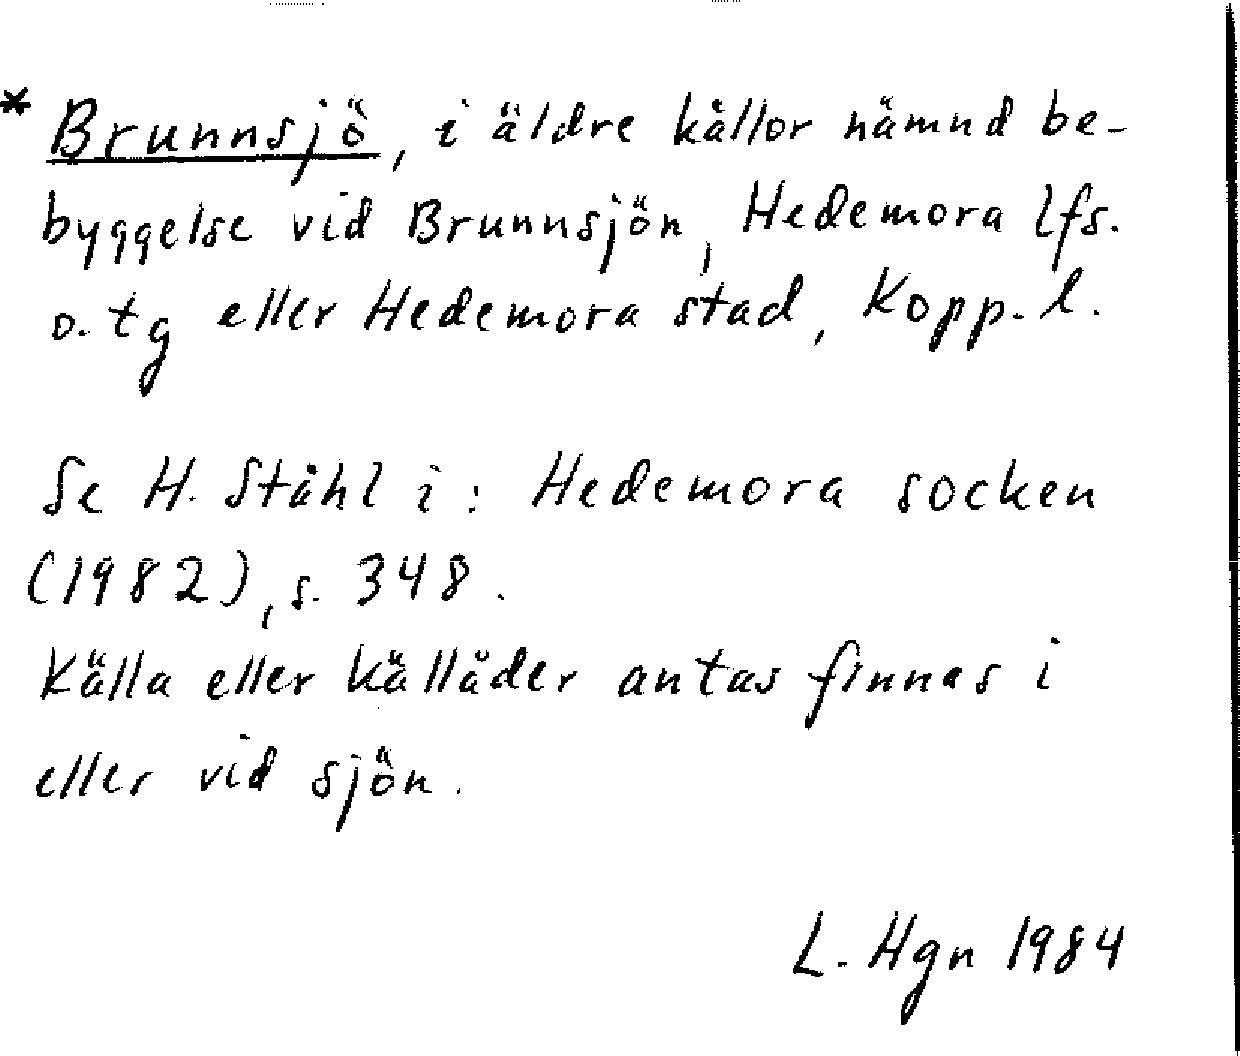 * Brunnsjö, i äldre källor nämnd be-
byggelse vid Brunnsjön, Hedemora lfs.
o. tg eller Hedemora stad, Kopp. l.
Se H. Ståhl i: Hedemora socken
(1982), s. 348.
Källa eller källåder antas finnas i
eller vid sjön.
L. Hgn 1984